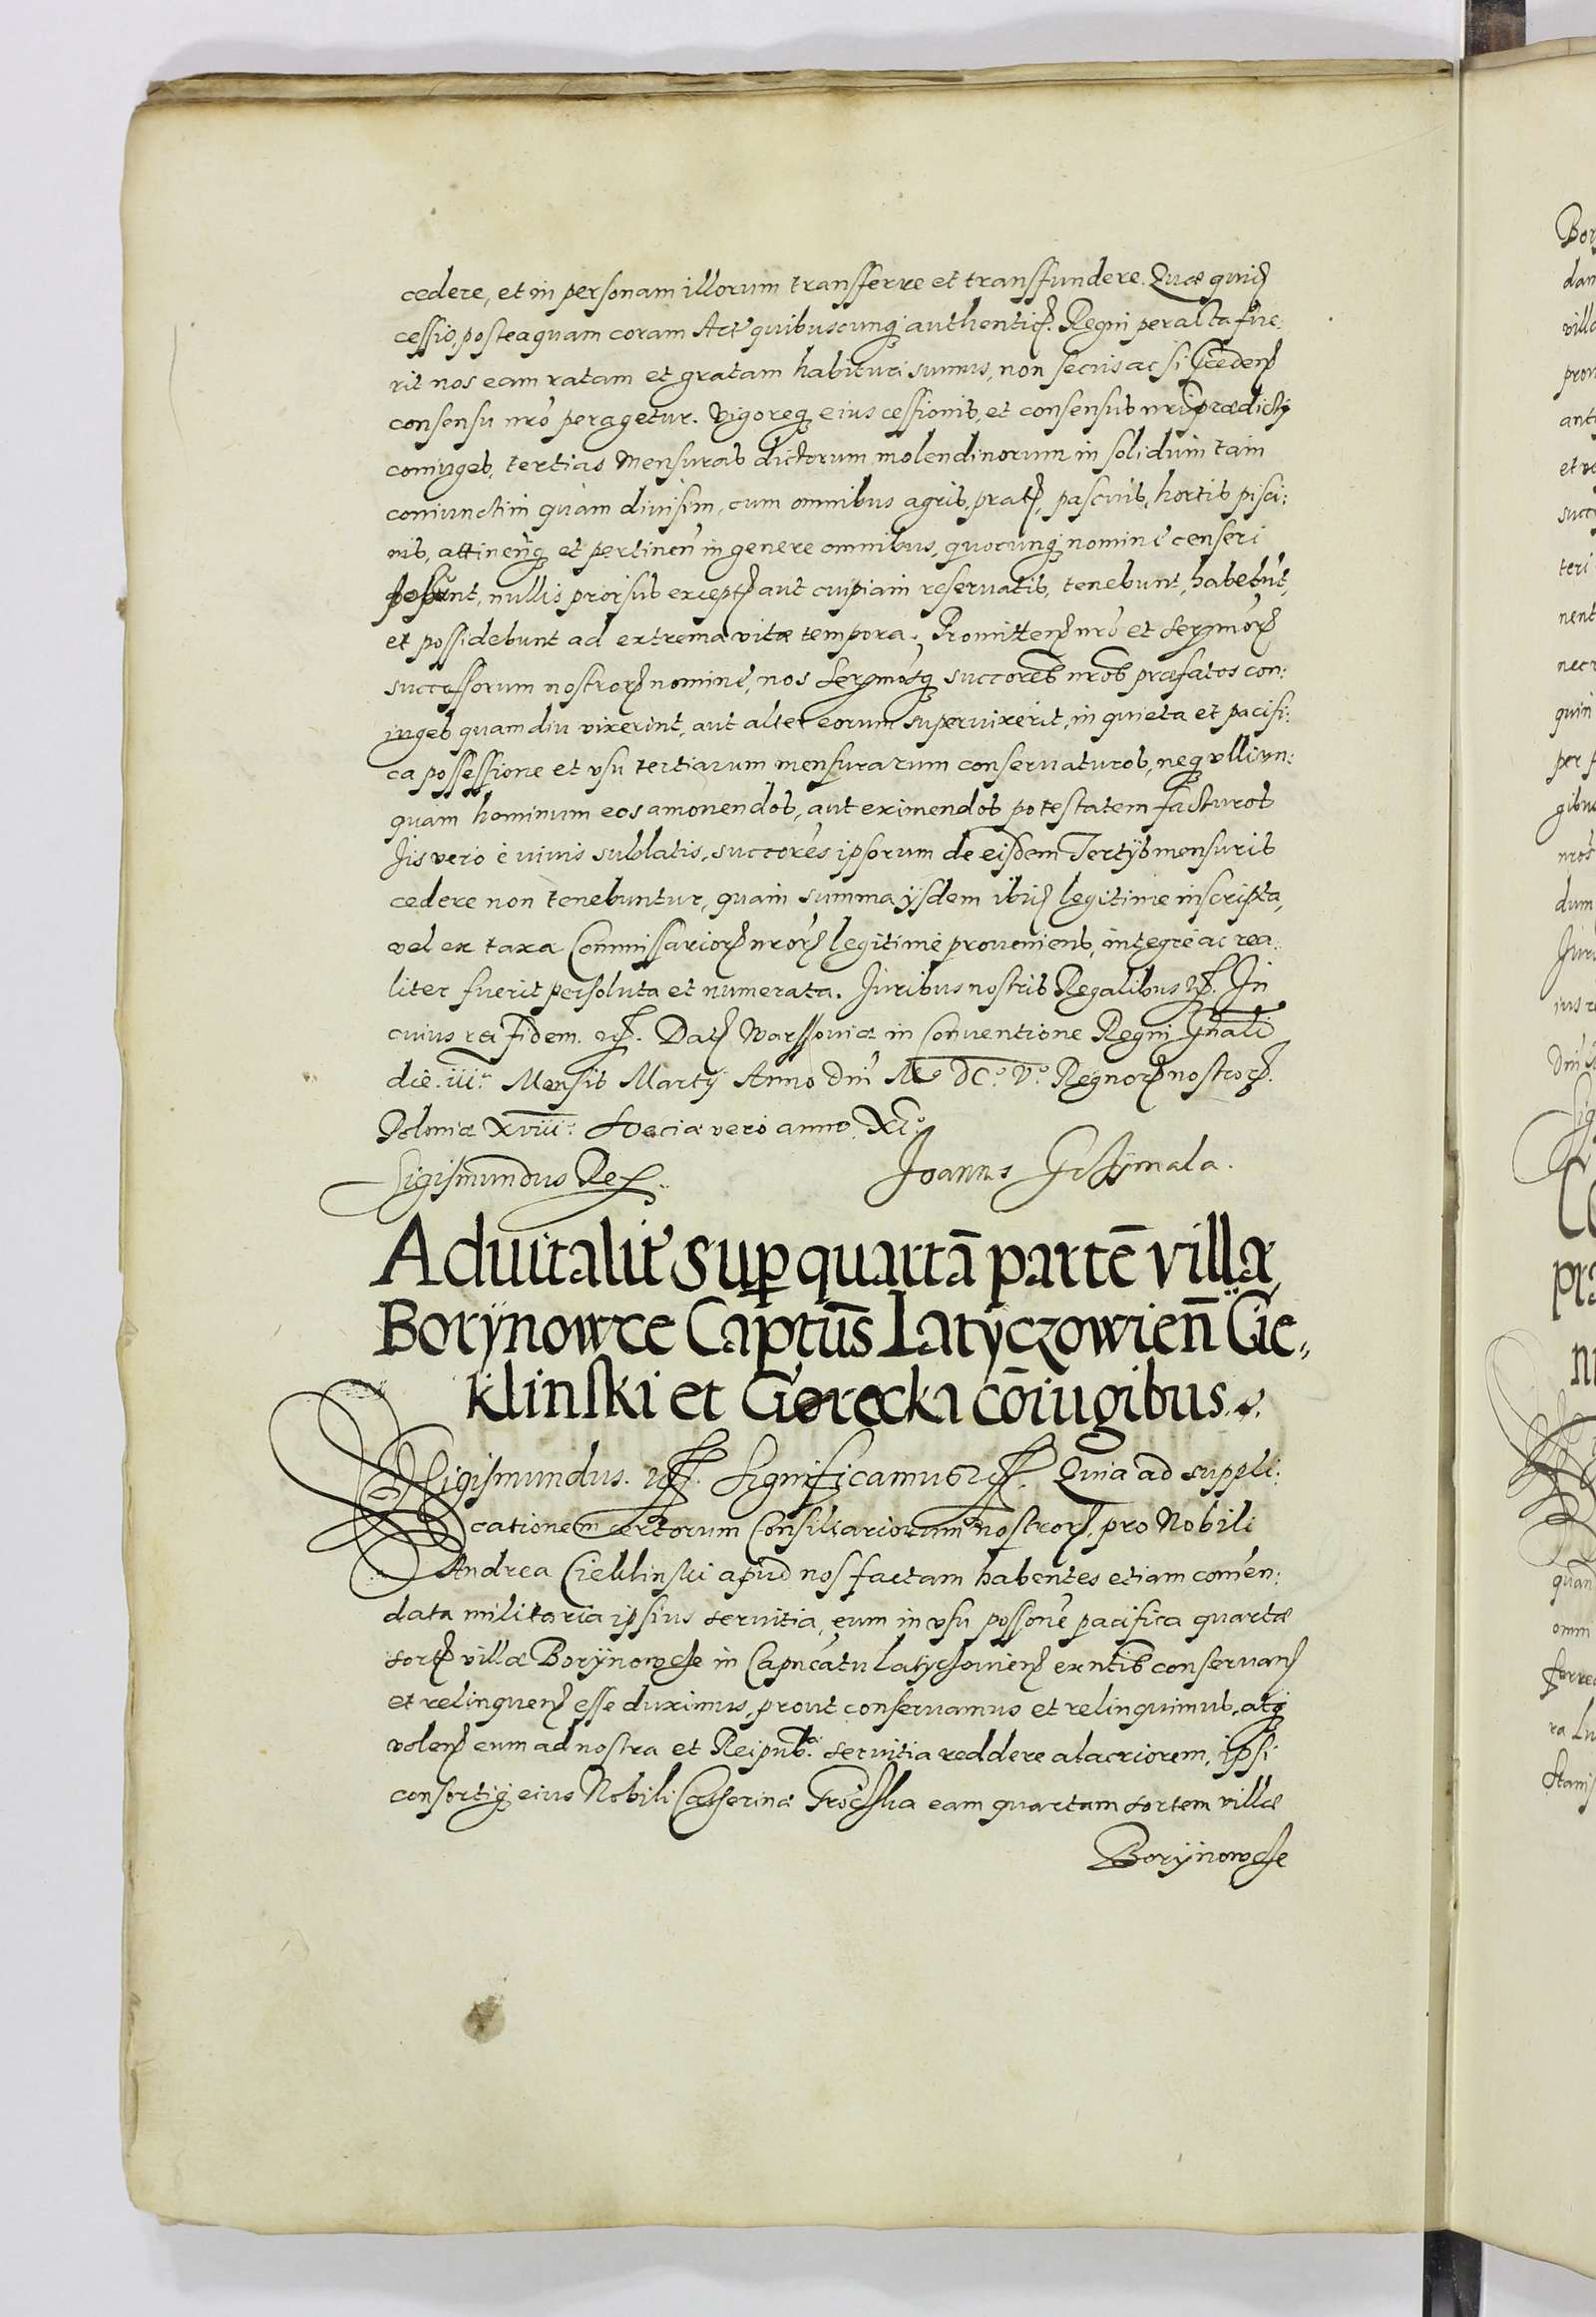 cedere, et in personam illorum transferre et transfundere. Quæ quid
cessio, posteaquam coram Act quibuscunq authentic. Regni peracta fue:
rit nos eam ratam et gratam habituri sumus, non secus ac si
consensu nrõ perageretur. Vigoreq eius cessionis, et consensus nri prædicti
coniuges, tertias Mensuras dictorum molendinorum in solidum tam
coniunctim quàm divisim, cum omnibus agris, prat, pascuis, hortis pisci:
nis, attinenq et pertinen in genere omnibus, quocunq nomine censeri
possunt, nullis prorsus except aut cuipiam reservatis, tenebunt, habebut,
et possidebunt ad extrema vitæ tempora. Promitten nrõ et Sermor
successorum nostror nomine, nos Sermosq succores nros præfatos con:
iuges quamdiu vixerint, aut alter eorum supervixerit, in quieta et pacifi:
ca possessione et vsu tertiarum mensurarum conservaturos, neq vlli vn:
quam hominum eos amovendos, aut eximendos potestatem facturos
Iis vero è vivis sublatis, succores ipsorum de eisdem Tertÿs mensuris
cedere non tenebuntur, quàm summa ÿsdem ibid legitime inscripta,
vel ex taxa Commissarior nror legitimè proveniens, integrè ac rea:
liter fuerit persoluta et numerata. Iuribus nostris Regalibus etc. In
cuius rei fidem etc. Dat Warssoviæ in Conventione Regni Gnali
die iii.a Mensis Martÿ Anno Dni Mo DC.o V.o Regnor nostror.
Poloniæ XVIII: Sveciæ vero anno XI.o
Sigismundus Rex. Joannes Grzÿmala.
Advitalit sup quartā partē villæ
Borÿnowce Captūs Latÿczowieñ Cie,
klinski et Gorecka cōiugibus.
Sigismundus. etc. Significamus etc. Quia ad suppli:
cationem certorum Consiliariorum nostror, pro Nobili
Andrea Cieklinski apud nos factam habentes etiam comen:
data militaria ipsius servitia, eum in vsu possone pacifica quartæ
sort villæ Borÿnowcze in Capncatu Latyczovien exntis conservan
et relinquen esse duximus, prout conservamus et relinquimus, atq
volen eum ad nostra et Reipub. servitia reddere alacriorem, ipsi
consortiq eius Nobili Catherinæ eam quartam sortem villæ
Borÿnowcze